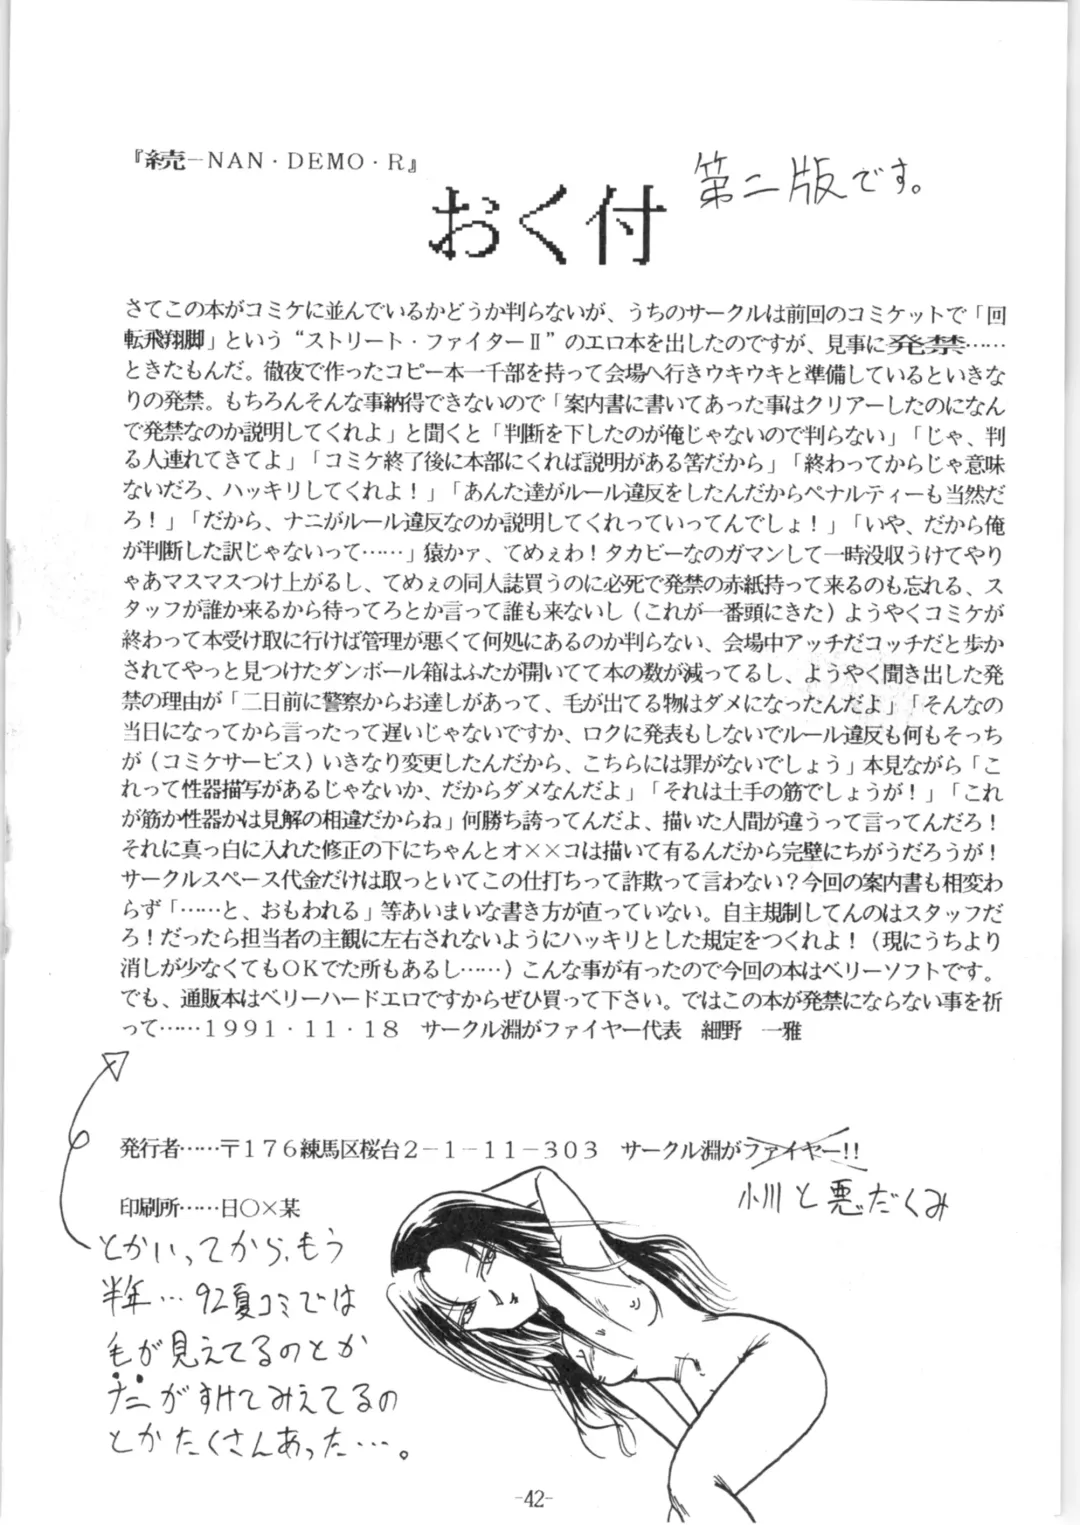 『続−NAN・DEMO・R』
第二版です。
おく付
さてこの本がコミケに並んでいるかどうか判らないが、うちのサークルは前回のコミケットで「回
転飛翔脚」という“ストリート・ファイターⅡ”のエロ本を出したのですが、見事に発禁……
ときたもんだ。徹夜で作ったコピー本一千部を持って会場へ行きウキウキと準備しているといきな
りの発禁。もちろんそんな事納得できないので「案内書に書いてあった事はクリアーしたのになん
で発禁なのか説明してくれよ」と聞くと「判断を下したのが俺じゃないので判らない」「じゃ、判
る人連れてきてよ」「コミケ終了後に本部にくれば説明がある筈だから」「終わってからじゃ意味
ないだろ、ハッキリしてくれよ！」「あんた達がルール違反をしたんだからペナルティーも当然だ
ろ！」「だから、ナニがルール違反なのか説明してくれっていってんでしょ！」「いや、だから俺
が判断した訳じゃないって……」猿かァ、てめぇわ！タカビーなのガマンして一時没収うけてやり
ゃあマスマスつけ上がるし、てめぇの同人誌買うのに必死で発禁の赤紙持って来るのも忘れる、ス
タッフが誰か来るから待ってろとか言って誰も来ないし（これが一番頭にきた）ようやくコミケが
終わって本受け取に行けば管理が悪くて何処にあるのか判らない、会場中アッチだコッチだと歩か
されてやっと見つけたダンボール箱はふたが開いてて本の数が減ってるし、ようやく聞き出した発
禁の理由が「二日前に警察からお達しがあって、毛が出てる物はダメになったんだよ」「そんなの
当日になってから言ったって遅いじゃないですか、ロクに発表もしないでルール違反も何もそっち
が（コミケサービス）いきなり変更したんだから、こちらには罪がないでしょう」本見ながら「こ
れって性器描写があるじゃないか、だからダメなんだよ」「それは土手の筋でしょうが！」「これ
が筋か性器かは見解の相違だからね」何勝ち誇ってんだよ、描いた人間が違うって言ってんだろ！
それに真っ白に入れた修正の下にちゃんとオ××コは描いて有るんだから完璧にちがうだろうが！
サークルスペース代金だけは取っといてこの仕打ちって詐欺って言わない？今回の案内書も相変わ
らず「……と、おもわれる」等あいまいな書き方が直っていない。自主規制してんのはスタッフだ
ろ！だったら担当者の主観に左右されないようにハッキリとした規定をつくれよ！（現にうちより
消しが少なくてもOKでた所もあるし……）こんな事が有ったので今回の本はベリーソフトです。
でも、通販本はベリーハードエロですからぜひ買って下さい。ではこの本が発禁にならない事を祈
って……1991・11・18　サークル淵がファイヤー代表　細野　一雅
発行者……〒176練馬区桜台2−1−11−303　サークル淵がファイヤー!!
小川と悪だくみ
印刷所……日○×某
とかいってから、もう
半年…92夏コミでは
毛が見えてるのとか
ナニがすけてみえてるの
とかたくさんあった…。
-42-